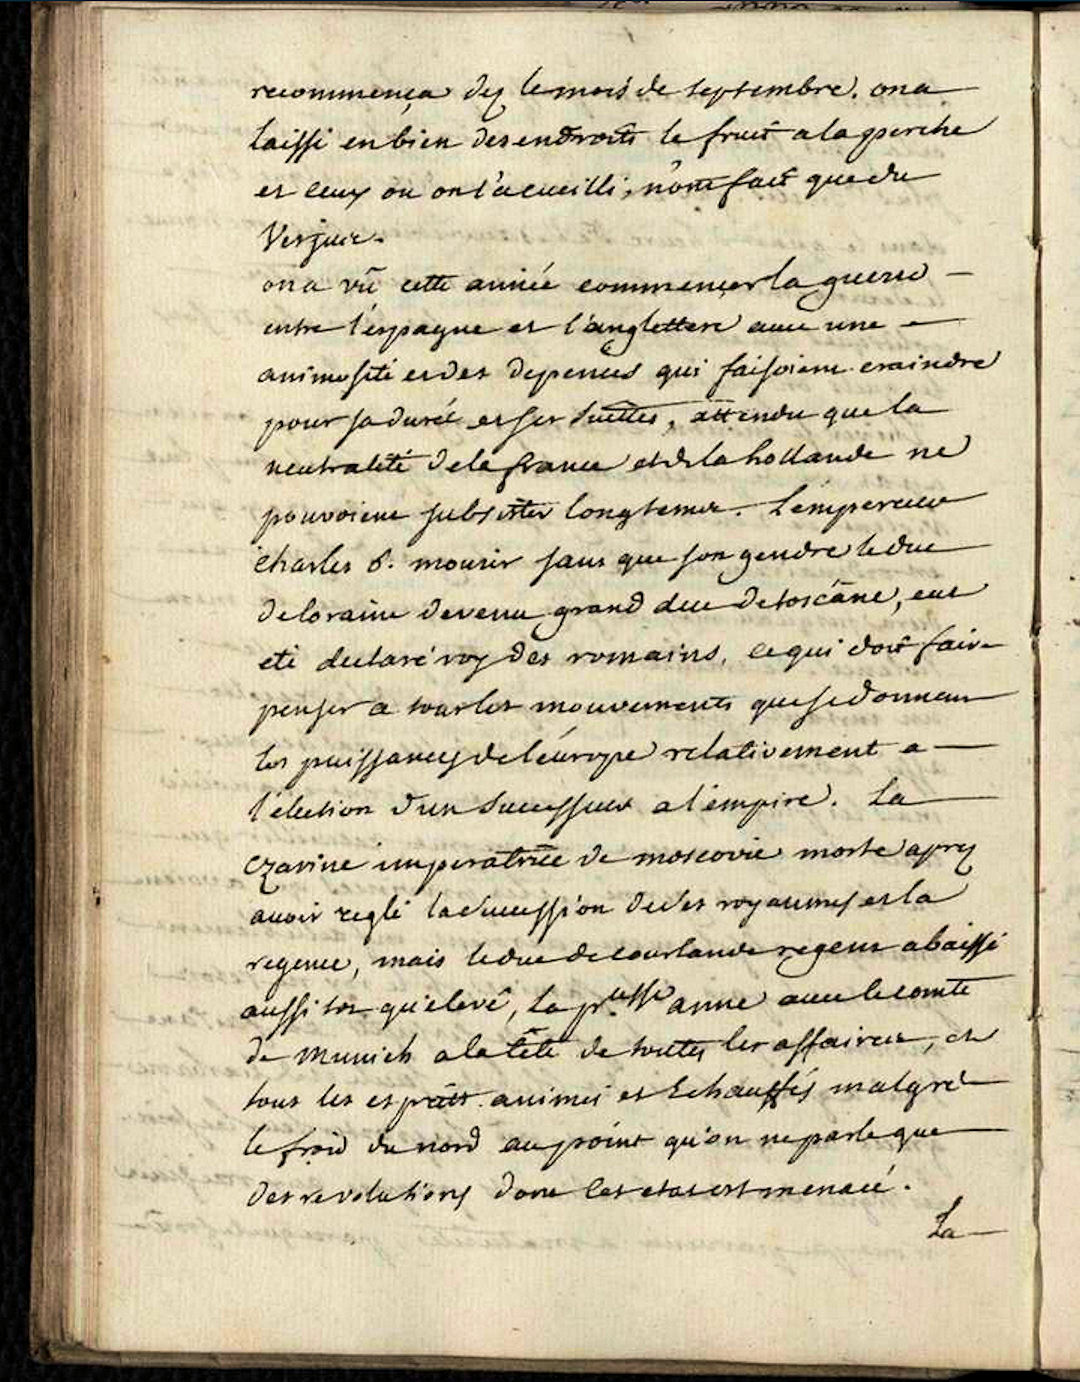 recommença dez le mois de septembre. on a
laissé en bien des endroits le fruit a la perche
et ceux ou on l'a cueilli, n'ont fait que du
Verjuie.
on a vû cette année commencer la guerre
entre l'espagne et l'angletterre avec une
animosité et des depences qui faisoient craindre
pour sa durée et ses suittes, attendu que la
neutralité de la france et de la hollande ne
pouvoient subsister longtems. L'empereur
charles 6. mourir sans que son gendre le duc
de loraine devenu grand duc de toscâne, eut
eté declaré roy des romains, ce qui doit faire
penser a tous les mouvements que se donnent
les puissances de l'éurope relativement a
l'élection d'un Successeur a l'émpire. La
czarine imperatrice de moscovie morte aprez
avoir reglé la succession de ses royaumes et la
regence, mais le duc de courlande regent abaissé
aussi tot qu'elevé, la pr.cesse anne avec le comte
de Munich a la tête de toutes les affaires, et
tous les esprits animés et Echauffés malgré
le froid du nord au point qu'on ne parle que
des revolutions dont les etats est menacé.
La